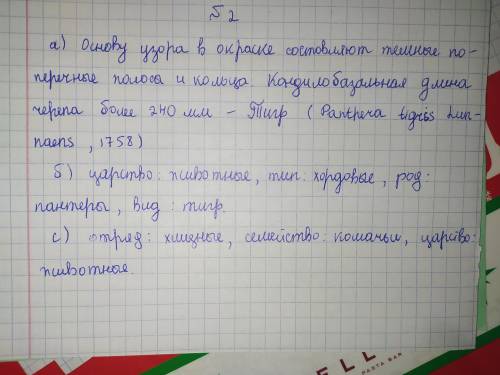 №2
а) Основу узора в окраске составляют темные по-
перечные полосы и кольца. Кондилобазальная длина
черепа более 240 мм – Тигр (Panthera tigris Lin-
naens, 1758)
б) царство: животные, тип: хордовые, род:
пантеры, вид: тигр.
с) отряд: хищные, семейство: кошачьи, царство:
животные.
ELL
PASTA BAR